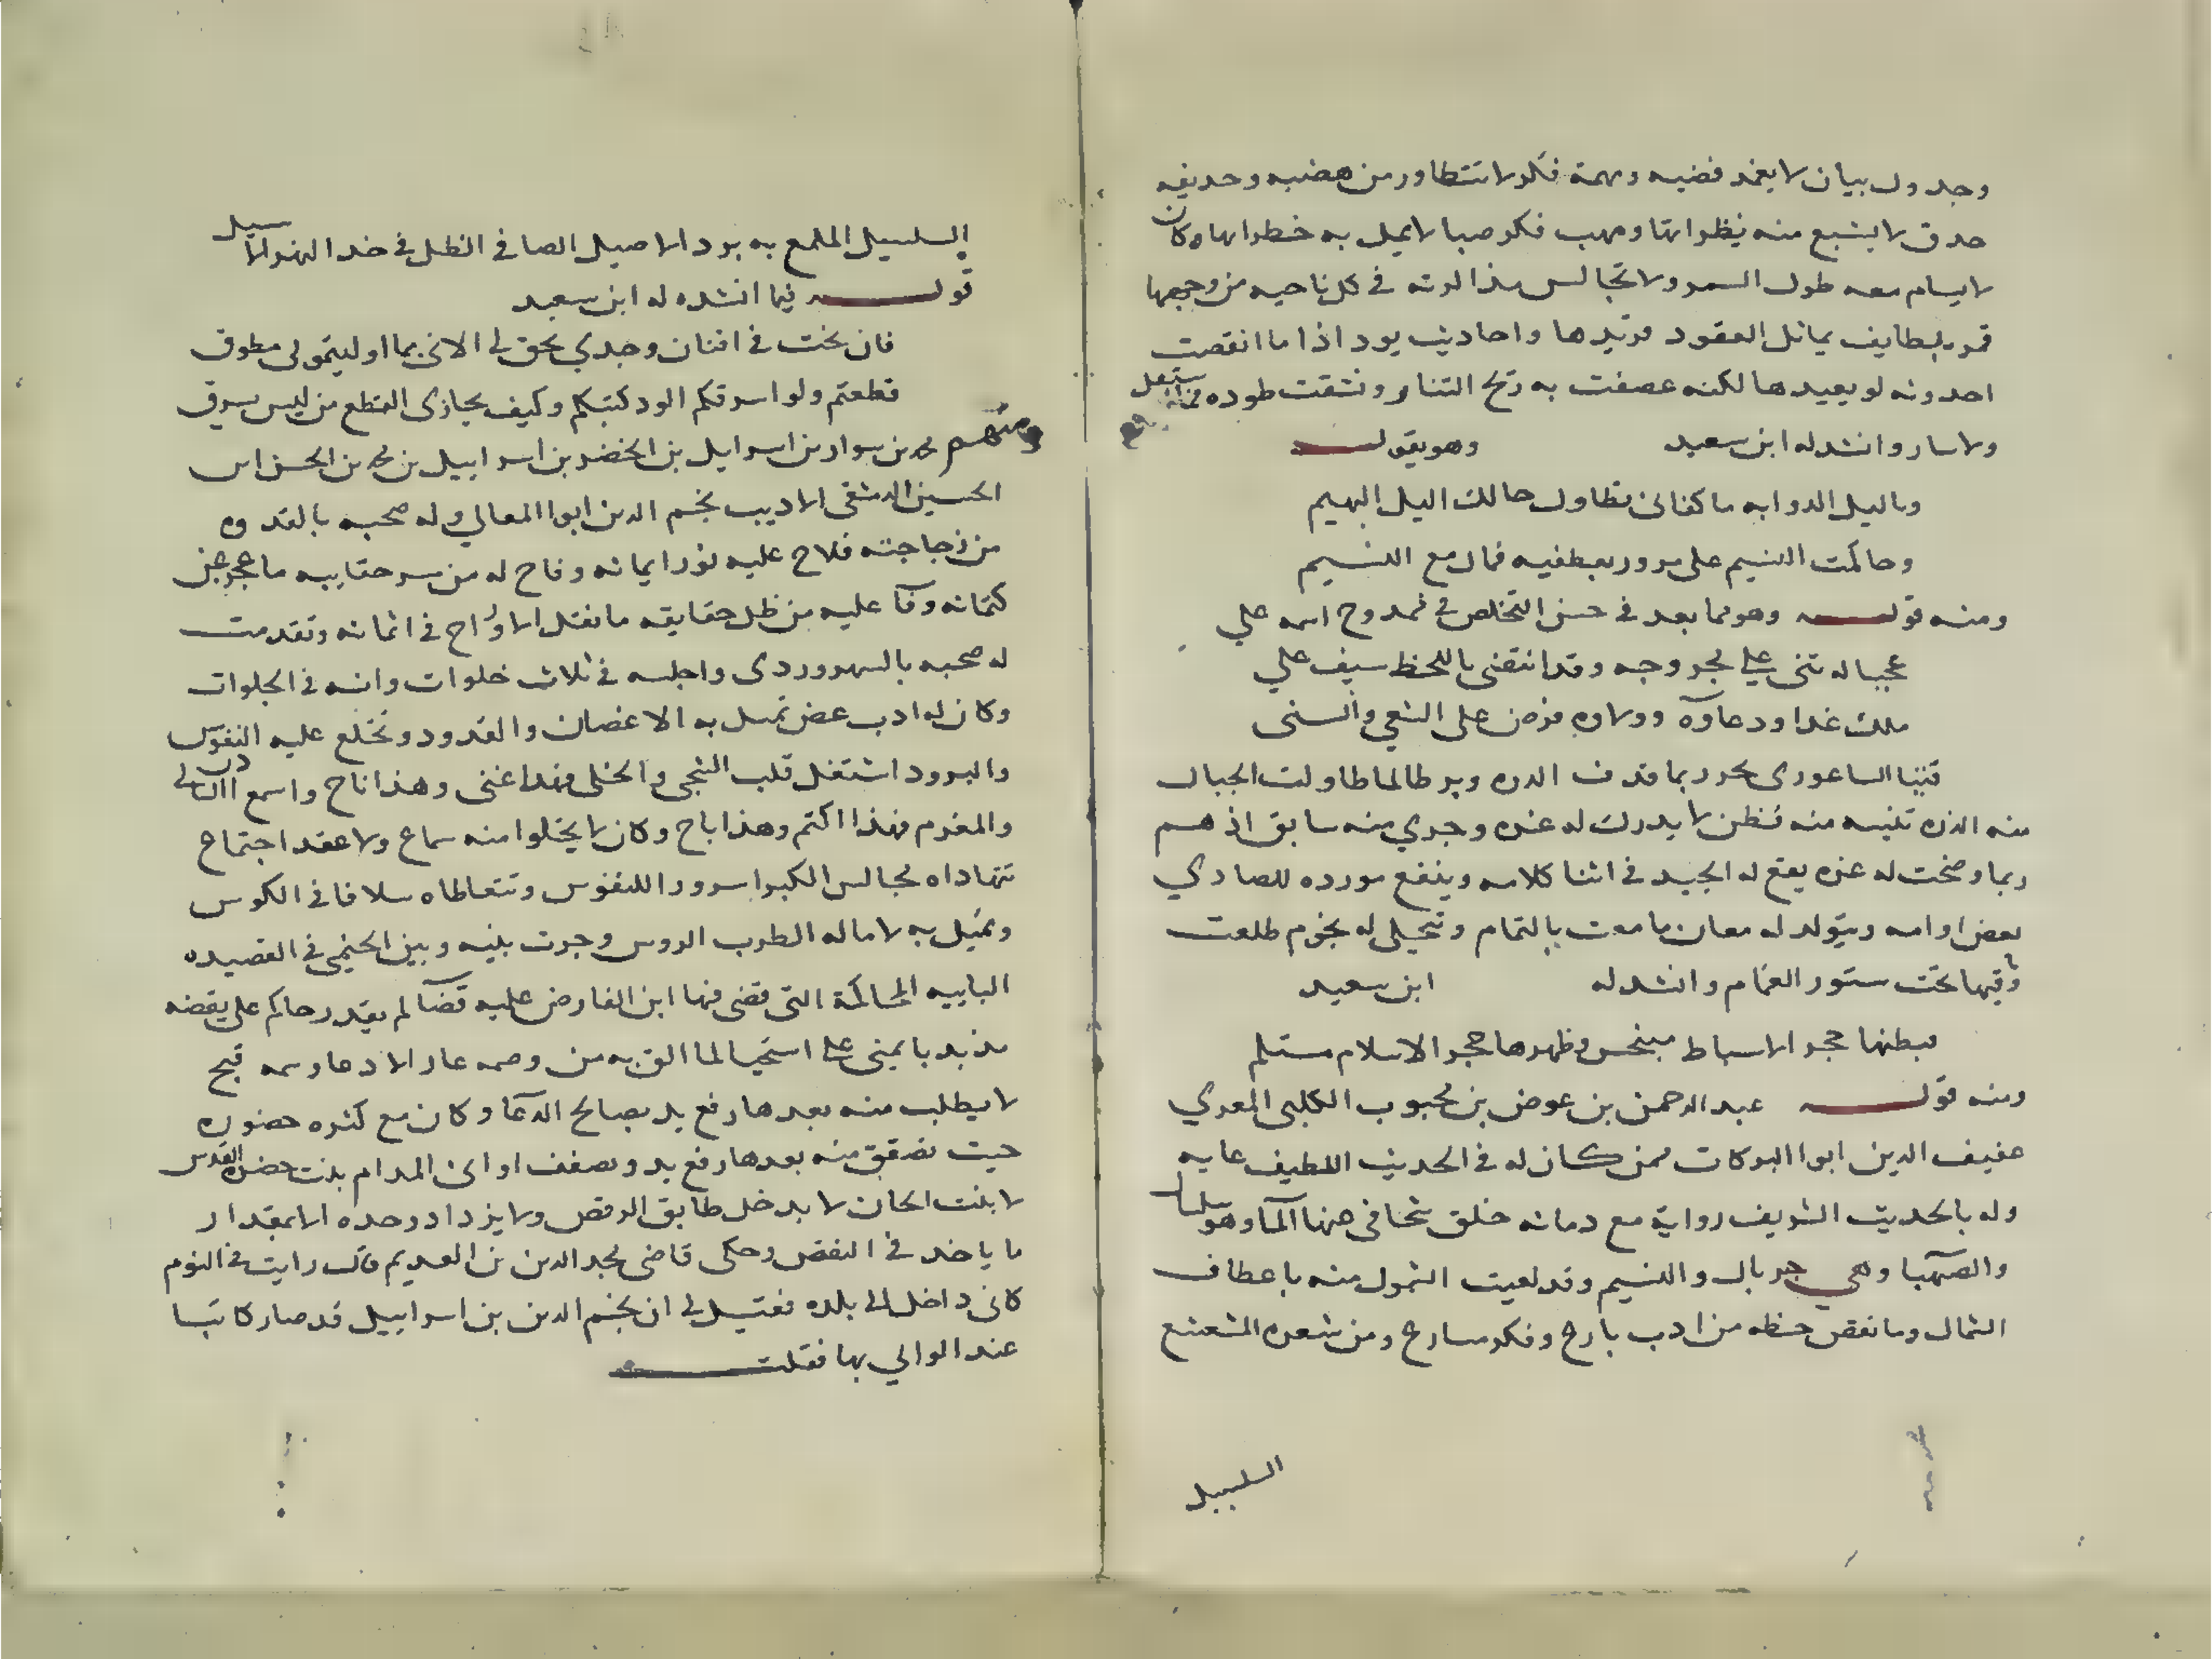 وجدول بيان لا يغمد قضيبه وبهمة فكر لا تتطاور من هضبه وحديقه
حدق لا يشبع منه نظراتها ومهب فكر صبا لا يمل به خطراتها وكان
لا يسام معه طول السمر ولا تجالس هذا لوته في كل ناحيه من وجهها
قمر بلطايف يماثل العقود فريدها واحاديث يود اذا ما انقصت
احدوثه لو يعيدها لكنه عصفت به ريح التنا ونشقت طوده
ولا سار وانشد له ابن سعيد وهو يقول
وبالليل الذوابه ما كفانى تطاول حالك اليل البهيم
وحاكمت النسيم على مرور بعطفيه فمال مع النسيم
ومنه قوله وهو مما بعد في حسن التخلص في ممدوح اسمه علي
عجبا له تثنى على محمر وجه وقد انتقنى باللحظ سيف علي
ملك غدا ودعاوه وولاوه فرض على الشعي والسنى
الساعورى بحرر بما قدف الدره وبر طالما طاولت الجبال
منه الذره تنيسه منه فطن لا يدرك له غره وجري منه سابق اذ هم
ربما وضحت له غره يقع له الجيد في اثنا كلامه وينفع مورده للصادي
بعض اوامه ويتولد له معان بالتمام وتتجلى له نجوم طلعت
وقيها تحت ستور الغمام وانشد له ابن سعيد
فبطنها حجر الاسباط منبجس وظهرها حجر الاسلام مستلم
ومنه قوله عبد الرحمن بن عوض بن محبوب الكلبى المعري
عفيف الدين ابوا البركات ممن كان له في الحديث اللطيف عايه
وله بالحديث الشريف رواية مع دماثه خلق تتجافى عنها الما وهو سلسال
والصهبا وهي جربال والنسيم وقد لعبت الشمول منه باعطاف
الشمال وما نقص حظه من ادب بارح وفكر سارح ومن شعره المشعشع
السلسبيل
السلسبيل الملمع به برد الاصيل الصافي الظل في خد النهر السيل
قوله فيما انشده له ابن سعيد
فان نحت في افنان وجدي بحق لي الاني بما اوليتموني مطوق
قطعتم ولو اسرقكم الود كتبكم وكيف يجازى القطع من ليس يسرق
ومنهم محمد بن سوار بن اسرايل بن الخضر بن اسراييل بن محمد بن الحسن ابن
الحسين الدمشقى الاديب نجم الدين ابوا المعالي وله صحبه بالقدوه
من زجاجته فلاح عليه نور ايمانه وفاح له من سر حقايبه ما عجز عن
كتمانه وفآ عليه من ظل حقايقه ما نقتل الارواح في اثمانه وتقدمت
له صحبه بالسهروردى واجلسه في ثلاث خلوات وانسه في الجلوات
وكان له ادب غض تميل به الاغصان والقدود وتخلع عليه النفوس
والبرود اشتغل قلب الشجى والخلى فهذا غنى وهذا ناح واسمع
والمغرم فهذا اكتم وهذا باح وكان لا يخلوا منه سماع ولا عقد اجتماع
تتهاداه مجالس الكبرا سرورا للنفوس وتتعاطاه سلافا في الكوس
وتميل به لاماله الطرب الروس وجرت بينه وبين الخيمى في القصيده
الباييه المحاكمة التى قضى فيها ابن الفارض عليه قضآ لم يقدر حاكم على نقضه
مد يد يا يمنى على استحيا لما الق به من وصمه عار الادعا وسمه قبح
لا يطلب منه بعدها رفع يد بصالح الدعآ وكان مع كثره حضوره
حيت تصفق منه بعدها رفع يد وتصفف اوانى المدام بنت حضرة القدس
لا بنت الحان لا يدخل طابق الرقص ولا يزداد وحده الا بمقدار
ما ياخذ في النقص وحكى قاضى مجد الدين بن العديم قال رايت في النوم
كانى داخل الى بلده فقيل لي ان نجم الدين بن اسراييل قد صار كاتبا
عند الوالي بها فقلت